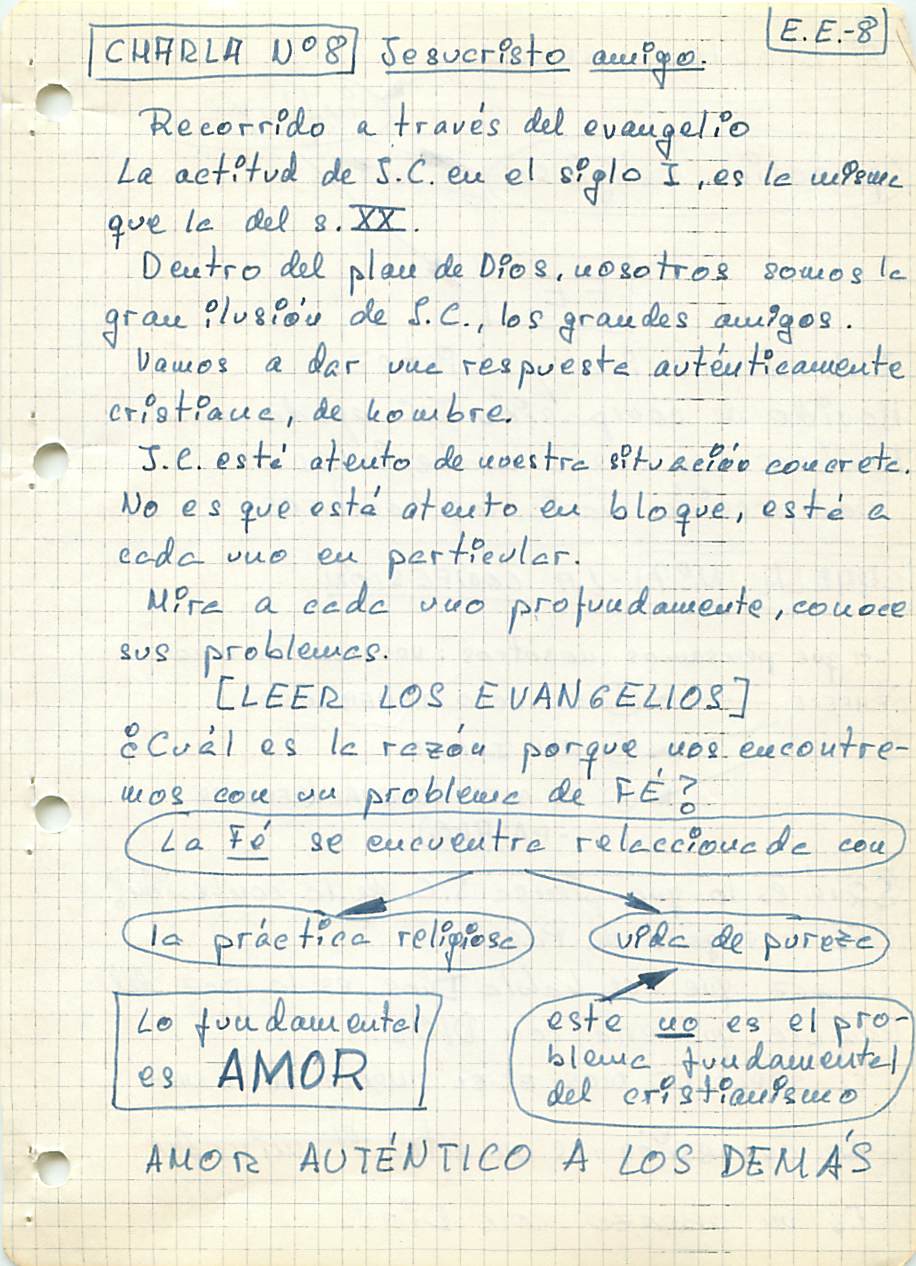 E.E.-8
CHARLA Nº 8 Jesucristo amigo.
Recorrido a través del evangelio
La actitud de J.C. en el siglo I, es la misma
que la del s. XX.
Dentro del plan de Dios, nosotros somos la
gran ilusión de J.C., los grandes amigos.
Vamos a dar una respuesta auténticamente
cristiana, de hombre.
J.C. está atento de nuestra situación concreta.
No es que está atento en bloque, está a
cada uno en particular.
Mira a cada uno profundamente, conoce
sus problemas.
[LEER LOS EVANGELIOS]
¿Cuál es la razón porque nos encontre-
mos con un problema de FÉ?
La Fé se encuentra relaccionada con
la práctica religiosa
vida de pureza
Lo fundamental
es AMOR
este no es el pro-
blema fundamental
del cristianismo
AMOR AUTÉNTICO A LOS DEMÁS